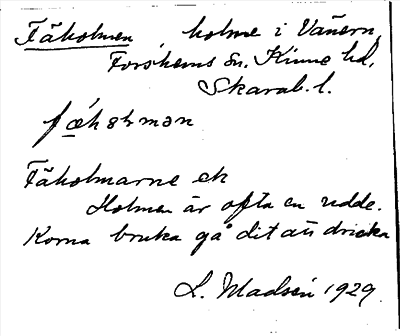 Fäholmen, holme i Vänern,
Forshems sn. Kinne hd,
Skarab. l.
Fäholmarne ek
Holmen är ofta en udde.
Korna bruka gå dit att dricka
L. Madsén 1929.